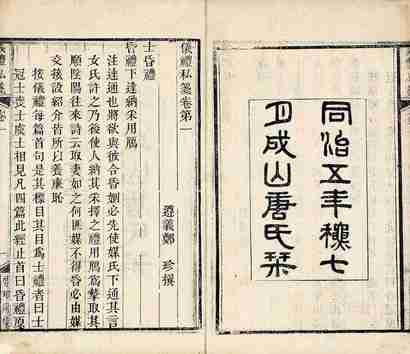 同治五年穐七
月成山唐氏栞
儀禮私箋卷第一
遵義鄭珍撰
士昏禮
昏禮下達納采用鴈
注達通也將欲與彼合昏姻必先使媒氏下通其言
女氏許之乃後使人納其采擇之禮用鴈爲摯取其
順陰陽往來詩云取妻如之何匪媒不得昏必由媒
交接設紹介皆所以養廉恥
按儀禮每篇首句是其標目其目爲士禮者曰士
冠士喪士虞士相見凡四篇此經止首曰昏禮原
儀禮私箋
卷一
一